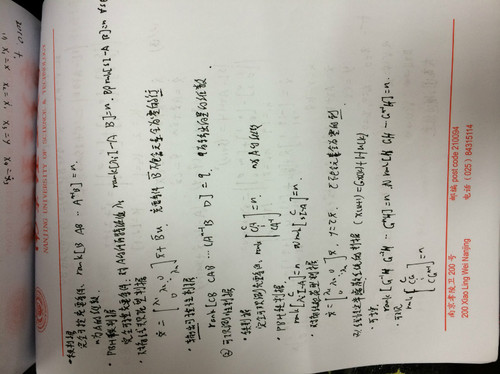 NANJING UNIVERSITY OF SCIENCE & TECHNOLOGY
·秩判据
完全可控充要条件: rank[B AB ··· Aⁿ⁻¹B]=n.
n为A的维数.
·PBH秩判据
完全可控充要条件: 对A的所有特征值λᵢ rank[λᵢI-A B]=n. 即rank[sI-A B]=n
·对角线规范型判据
x̄̇ = [λ₁ λ₂ 0 0 λₙ] x̄ + B̄u, 充要条件 B̄不包含元素全为零的行
·输出可控性判据
rank[CB CAB ··· CAⁿ⁻¹B D] = q. q为输出向量的维数
② 可观测性判据
·秩判据
完全可观测充要条件: rank [C CA ⋮ CAⁿ⁻¹] = n. n为A的维数
·PBH秩判据.
rank[C λᵢI-A]=n 或 rank[C sI-A]=n.
·对角线规范型判据
x̄̇ = [λ₁ λ₂ 0 0 λₙ] x̄, y=C̄x̄. C̄不包含元素全为零的列
离散系统的判据 (x(k+1)=Gx(k)+Hu(k)
·可控
rank[G⁻¹H G⁻²H ··· G⁻ⁿH]=n 或 rank[H GH ··· Gⁿ⁻¹H]=n.
·可观
rank [C CG ⋮ CGⁿ⁻¹] = n
南京孝陵卫 200 号 邮编 post code 210094
200 Xiao Ling Wei Nanjing 电话（025）84315114